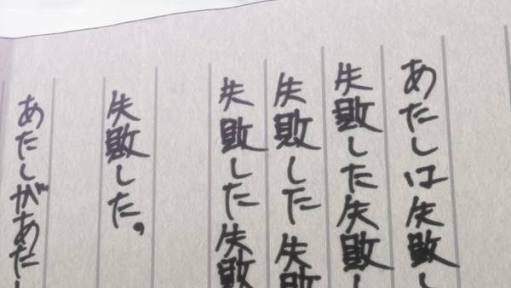 あたしは失敗し
失敗した失敗
失敗した失敗
失敗した失敗
失敗した。
あたしがあたし